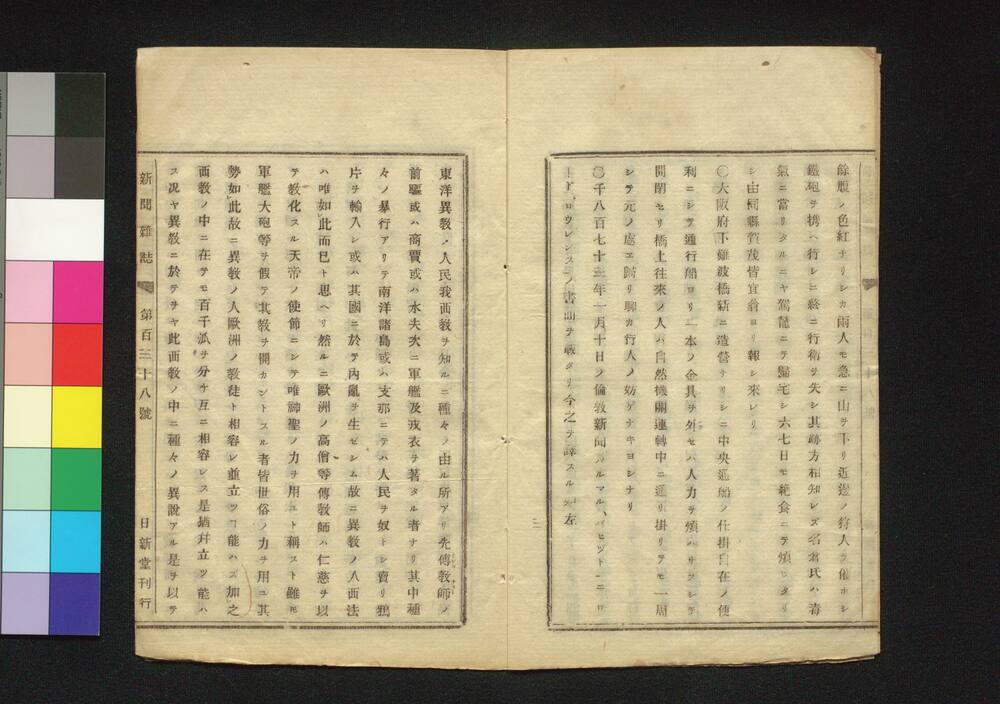 餘ノ色紅ナリシカ兩人モ急ニ山ヲ下リ近邊ノ狩人ヲ催ホシ
鐵砲ヲ携ヘ行シニ終ニ行衛ヲ失シ其跡方相知レズ名倉氏ハ毒
氣ニ當リタルニヤ駕籠ニテ歸宅シ六七日モ絶食ニテ煩ヒタリ
シ由同縣賀茂皆宜翁ヨリ報シ來レリ
〇大阪府下難波橋新ニ造營ナリシニ中央通船ノ仕掛自在ノ便
利ニシテ通行船ヨリ一本ノ金具ヲ外セハ人力ヲ煩ハサスシテ
開閉セリ橋上往來ノ人ハ自然機關運轉中ニ通リ掛リテモ一周
シテ元ノ處エ歸リ聊カ行人ノ妨ゲナキヨシナリ
〇千八百七十三年一月十日ノ倫敦新聞ルマルハイヒヅトニロ
ードロウレンスノ書面ヲ載タリ今之ヲ譯スル左
東洋異敎ノ人民我西敎ヲ知ルニ種々ノ由ル所アリ先傳敎師ノ
前驅或ハ商賈或ハ水夫次ニ軍艦及戎衣ヲ著タル者ナリ其中種
々ノ暴行アリテ南洋諸島或ハ支那ニテハ人民ヲ奴トシ賣リ鴉
片ヲ輸入シ或ハ其國ニ於テ內亂ヲ生ゼシム故ニ異敎ノ人西法
ハ唯如此而已ト思ヘリ然ルニ歐洲ノ高僧等傳敎師ハ仁慈ヲ以
テ敎化スル天帝ノ使節ニシテ唯神聖ノ力ヲ用ユト稱スト雖モ
軍艦大砲等ヲ假テ其敎ヲ開カントスル者皆世俗ノ力ヲ用ユ其
勢如此故ニ異敎ノ人歐洲ノ敎徒ト相容レ並立ツヿ能ハズ加之
西敎ノ中ニ在テモ百千派ヲ分ケ互ニ相容レス是猶幷立ツ能ハ
ス况ヤ異敎ニ於テヲヤ此西敎ノ中ニ種々ノ異說アル是ヲ以テ
新聞雜誌 第百三十八號 日新堂刊行